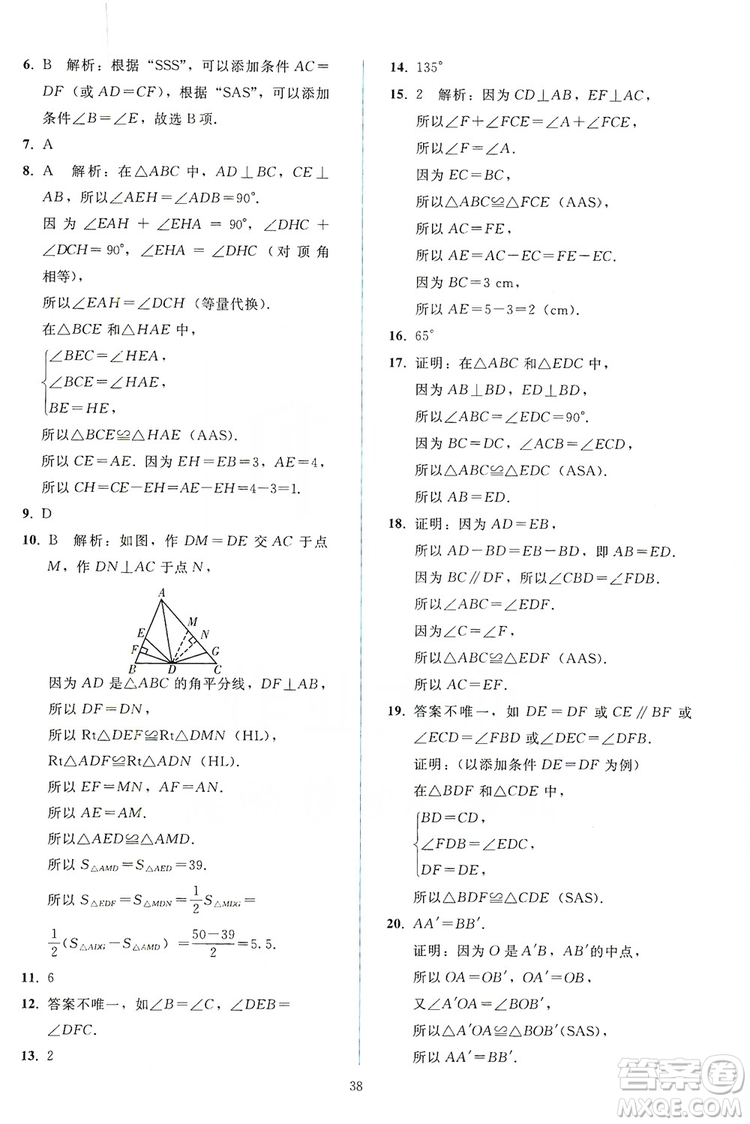 6. B 解析：根据“SSS”，可以添加条件 AC=
DF（或 AD=CF），根据“SAS”，可以添加
条件∠B=∠E，故选 B 项.
7. A
8. A 解析：在△ABC 中，AD⊥BC，CE⊥
AB，所以∠AEH=∠ADB=90°.
因为 ∠EAH + ∠EHA = 90°，∠DHC +
∠DCH=90°，∠EHA=∠DHC（对顶角
相等），
所以∠EAH=∠DCH（等量代换）.
在△BCE 和△HAE 中，
∠BEC=∠HEA，
∠BCE=∠HAE，
BE=HE，
所以△BCE≌△HAE（AAS）.
所以 CE=AE. 因为 EH=EB=3，AE=4，
所以 CH=CE-EH=AE-EH=4-3=1.
9. D
10. B 解析：如图，作 DM=DE 交 AC 于点
M，作 DN⊥AC 于点 N，
A
M
E
N
F
G
B D C
因为 AD 是△ABC 的角平分线，DF⊥AB，
所以 DF=DN，
所以 Rt△DEF≌Rt△DMN（HL），
Rt△ADF≌Rt△ADN（HL）.
所以 EF=MN，AF=AN.
所以 AE=AM.
所以△AED≌△AMD.
所以 S△AMD=S△AED=39.
所以 S△EDF=S△MDN=1/2 S△MDG=
1/2(S△ADG-S△AMD)=(50-39)/2=5.5.
11. 6
12. 答案不唯一，如∠B=∠C，∠DEB=
∠DFC.
13. 2
14. 135°
15. 2 解析：因为 CD⊥AB，EF⊥AC，
所以∠F+∠FCE=∠A+∠FCE.
所以∠F=∠A.
因为 EC=BC，
所以△ABC≌△FCE（AAS）.
所以 AC=FE，
所以 AE=AC-EC=FE-EC.
因为 BC=3 cm，
所以 AE=5-3=2（cm）.
16. 65°
17. 证明：在△ABC 和△EDC 中，
因为 AB⊥BD，ED⊥BD，
所以∠ABC=∠EDC=90°.
因为 BC=DC，∠ACB=∠ECD，
所以△ABC≌△EDC（ASA）.
所以 AB=ED.
18. 证明：因为 AD=EB，
所以 AD-BD=EB-BD，即 AB=ED.
因为 BC∥DF，所以∠CBD=∠FDB.
所以∠ABC=∠EDF.
又因为∠C=∠F，
所以△ABC≌△EDF.
所以 AC=EF.
19. 答案不唯一，如 DE=DF 或 CE∥BF 或
∠ECD=∠FBD 或∠DEC=∠DFB.
证明：（以添加条件 DE=DF 为例）
在△BDF 和△CDE 中，
BD=CD，
∠FDB=∠EDC，
DF=DE，
所以△BDF≌△CDE（SAS）.
20. AA′=BB′.
证明：因为 O 是 A′B，AB′的中点，
所以 OA=OB′，OA′=OB.
又∠A′OA=∠BOB′，
所以△A′OA≌△BOB′（SAS）.
所以 AA′=BB′.
38
答案圈
MXQE.COM